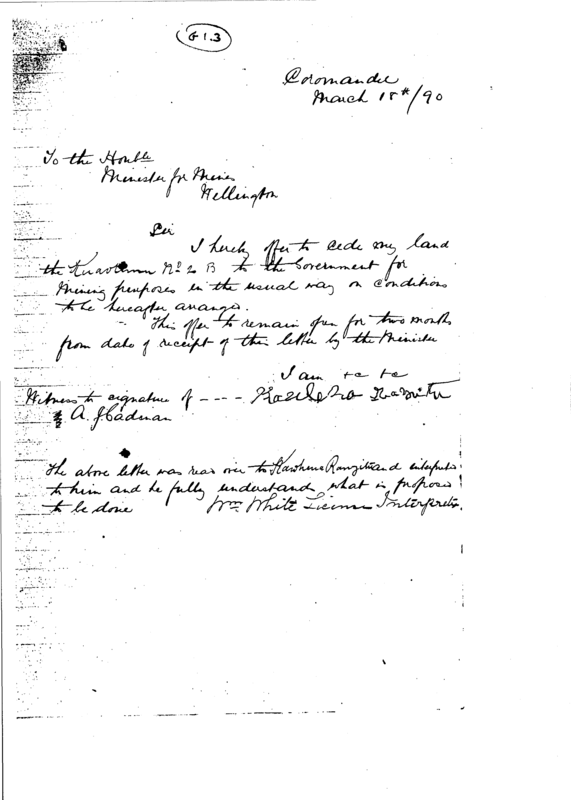 G 1.3
Coromandel
March 18th/90
To the Honble
Minister for Mines
Wellington
Sir
I hereby offer to cede my land
the No 2 B to the Government for
Mining purposes in the usual way on conditions
to be hereafter arranged.
This offer to remain open for two months
from date of receipt of this letter by the Minister
I am &c &c
Witness to signature of ----
A. J. Cadman
The above letter was read over to and interpreted
to him and he fully understands what is proposed
to be done Wm White Licensed Interpreter.